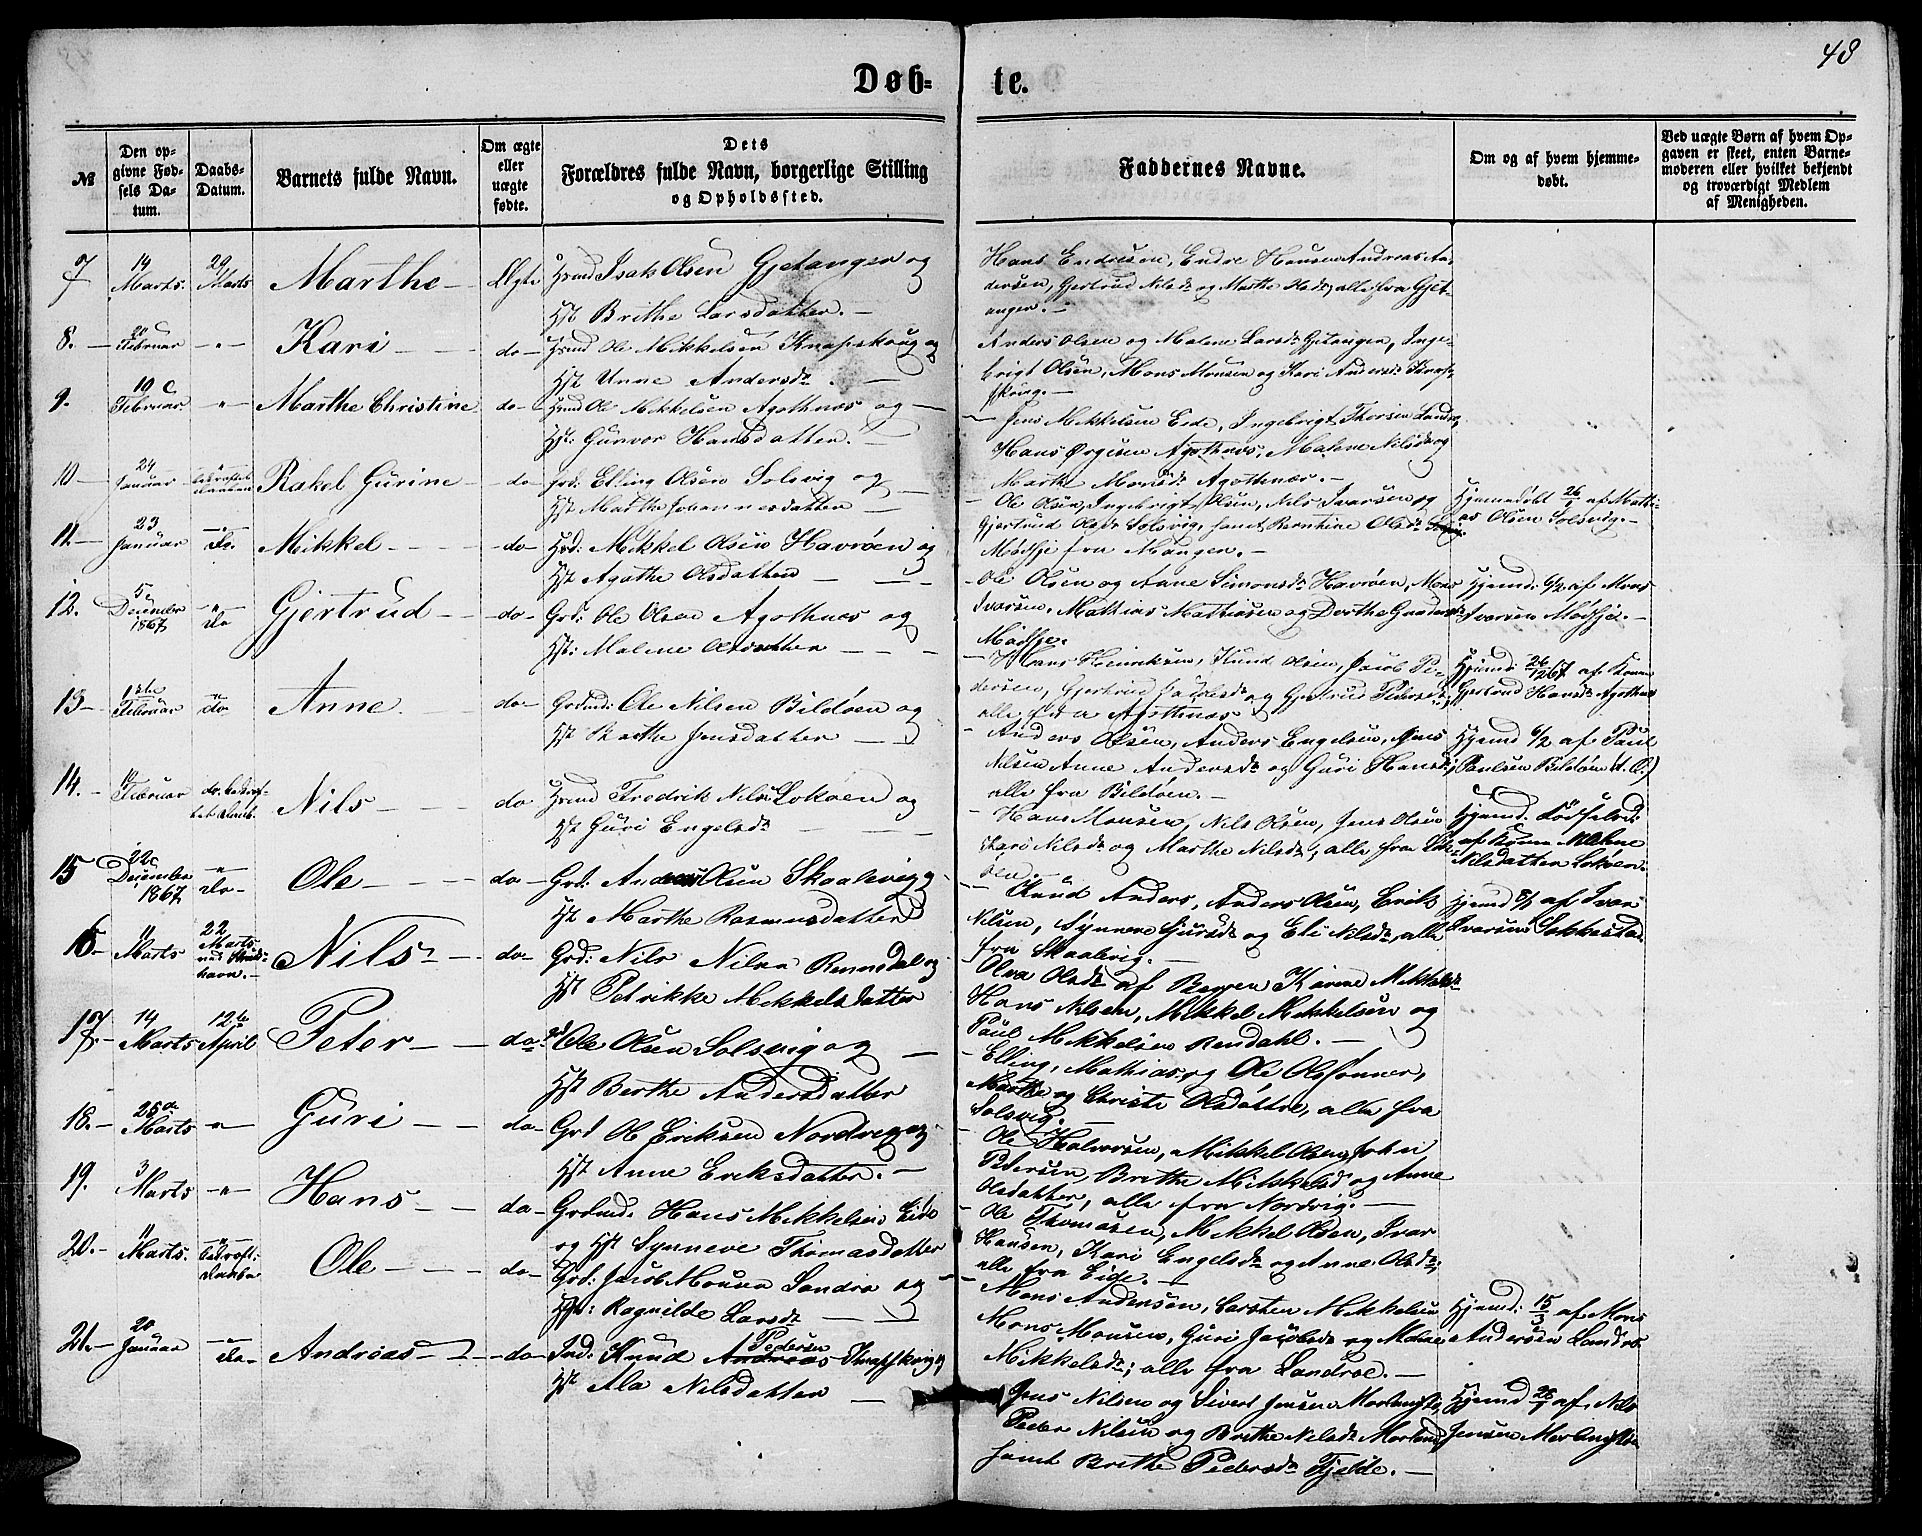 48
Døb-
te.
№
Den op-
givne Fød-
sels Da-
tum.
Daabs-
Datum.
Barnets fulde Navn.
Om ægte
eller
uægte
fødte.
Dets
Forældres fulde Navn, borgerlige Stilling
og Opholdssted.
Faddernes Navne.
Om og af hvem hjemme-
døbt.
Ved uægte Børn af hvem Op-
gaven er skeet, enten Barne-
moderen eller hvilket bekjendt
og troværdigt Medlem
af Menigheden.
7
19 Marts.
29 Marts
Marthe
Ægte
Isak Olsen Gjetangen og
Brithe Larsdatter.
Hans Endresen, Endre Hansen Andreas An-
dersen, Gjertrud Nilsd og Marthe, alle fra Gjet-
angen.
8.
Februar
Kari
do
Ole Mikkelsen Knapskoug og
Unne Andersd
Anders Olsen og Malene Larsd Gjetangen, Inge-
brigt Olsen, Mons Monsen og Kari Andersd Knap-
skoug.
9.
10 Februar
Marthe Christine
do
Ole Mikkelsen Agothnæs og
Gunvor Hansdatter.
Jens Mikkelsen Eide, Ingebrigt Thorsen Landro,
Hans Ørgesen Agothnæs, Malene Nilsd og
Marthe Monsd Agothnæs.
10
24 Januar
Rakel Gurine
do
Grd: Elling Olsen Solsvig og
Marthe Johannesdatter
Ole Olsen, Ingebrigt Olsen, Nils Ivarsen og
Gjertrud Olsd Solsvig, samt Berntine Olsd
Mødsje fra Mangen.
Hjemmedøbt 26/1 af Matti-
as Olsen Solsvig.
11.
23 Januar
do.
Mikkel
do
Mikkel Olsen Havrøen og
Agathe Olsdatter
Ole Olsen og Anne Simonsd Havrøen, Mons
Ivarsen, Mathias Mathiasen og Dorthe
Mødsje.
Hjemd: 6/2 af Mons
Ivarsen Mødsje.
12.
5 December 1867
do
Gjertrud
do
Grd: Ole Olsen Agothnæs og
Malene Olsdatter
Hans Henriksen, Knud Olsen, Jacob Pe-
dersen, Gjertrud Jacobsd og Gjertrud Pedersd,
alle fra Agothnæs
Hjemd: 26/12 67 af Konen
Gjertrud Hansd Agothnæs
13
1ste Februar
do
Anne
do
Ole Nilsen Bildøen og
Marthe Jensdatter
Anders Olsen, Anders Engelsen, Jens
Nilsen Anne Andersd og Guri Hansd,
alle fra Bildøen.
Hjemd 6/2 af Paul
Paulsen Bildøen
14.
Februar
Nils
do
Fredrik Nils Lokøen og
Guri Engelsd
Hans Monsen, Nils Olsen, Jens Olsen
Kari Nilsd og Marthe Nilsd, alle fra Lok-
øen.
Hjemd.
af Konen Malene
Nilsdatter Lokøen.
15
22 December 1867
do
Ole
do
Grd: Anders Olsen Skaalevig
Marthe Rasmusdatter
Knud Anders, Anders Olsen, Erik
Nilsen, Synneve og Eli Nilsd, alle
fra Skaalvig.
Hjemd af Ivar
Ivarsen
16
11 Marts
22 Marts
Nils
do
Grd: Nils Nilsen og
Petrikke Mikkelsdatter
Olsd af Bergen Karine
Hans Nilsen, Mikkel Mikkelsen og
Paul Mikkelsen Rendahl.
17.
14 Marts
12te April
Peter
do
Ole Olsen Solsvig og
Berthe Andersdatter
Elling, Mathias og Ole Olssønner,
Marthe og Christi Olsdøttre, alle fra
Solsvig.
18.
25de Marts
Guri
do
Grd Ole Eriksen Nordvig og
Anne Eriksdatter.
Ole Halvorsen, Mikkel Olsen, John
Pedersen, Brithe Mikkelsd og Anne
Olsdatter, alle fra Nordvig.
19.
3 Marts
Hans
do
Hans Mikkelsen Eide
og Synneve Thomasdatter
Ole Thomasen, Mikkel Olsen, Ivar
Hansen, Kari Engelsd og Anne Olsd,
alle fra Eide.
20.
11 Marts.
Ole
do
Grd: Jacob Monsen Landro og
Ragnilde Larsd
Mons Andersen, Carsten Mikkelsen
Mons Monsen, Guri Jacobsd og
Mikkelsd, alle fra Landroe.
Hjemd: 15/3 af Mons
Andersen Landro.
21.
20 Januar
do
Andreas
do
Ind. Knud Pedersen
Ala Nilsdatter
Jens Nilsen og Sivert Jensen
Peder Nilsen og Brithe Nilsd
samt Brithe Pedersd Fjelde.
Hjemd af Nils
Jensen